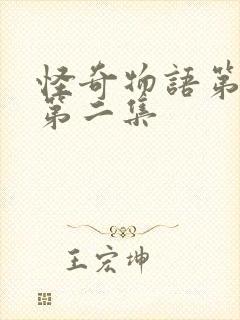 怪奇物語第
第二集
王宏坤